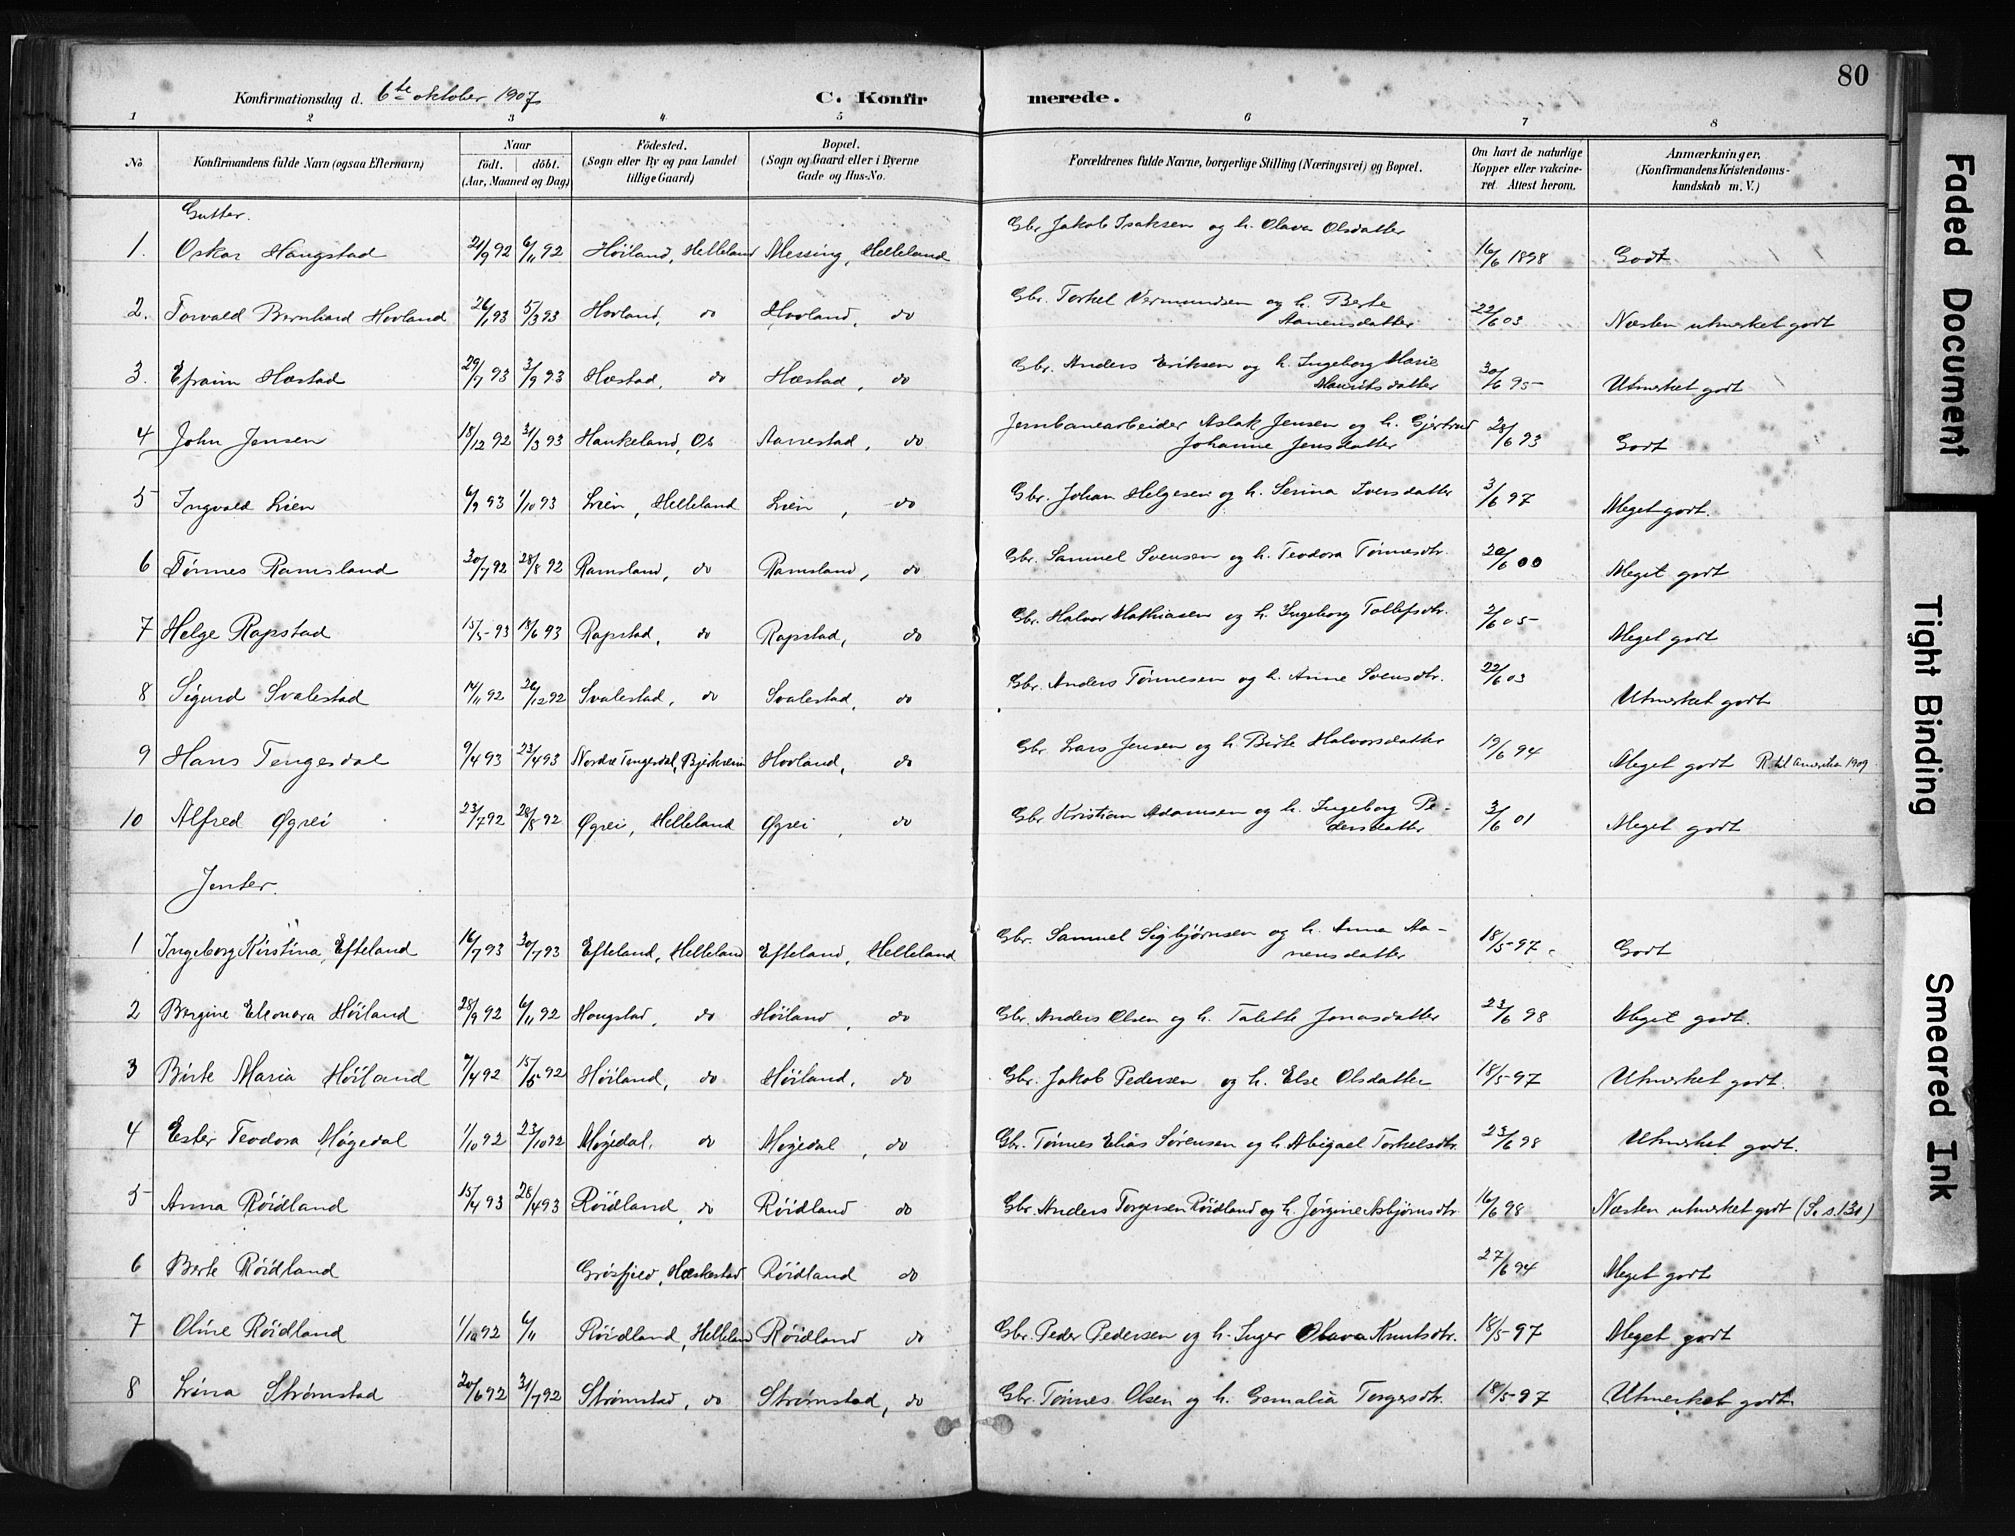 80
Konfirmationsdag d. 6te oktober 1907
C. Konfirmerede.
1 2 3 4 5 6 7 8
No
Konfirmandens fulde Navn (ogsaa Efternavn)
Naar
født. døbt.
(Aar, Maaned og Dag)
Fødested.
(Sogn eller By og paa Landet
tillige Gaard)
Bopæl.
(Sogn og Gaard eller i Byerne
Gade og Hus-No.
Forældrenes fulde Navne, borgerlige Stilling (Næringsvei) og Bopæl.
Om havt de naturlige
Kopper eller vakcine-
ret. Attest herom.
Anmærkninger.
(Konfirmandens Kristendoms-
kundskab m. V.)
Gutter.
1. Oskar Haugstad 21/9 92 6/11 92 Høiland, Helleland Messing, Helleland Gbr. Jakob Isaksen og h. Olava Olsdatter 16/6 1898 Godt
2. Torvald Bernhard Hovland 26/1 93 5/3 93 Hovland, do Hovland, do Gbr. Torkel Vermundsen og h. Berte
Aanensdatter 22/6 03 Næsten utmerket godt
3. Efraim Hæstad 29/7 93 3/9 93 Hæstad, do Hæstad, do Gbr. Anders Eriksen og h. Ingeborg Marie
Mauritsdatter 30/6 95 Utmerket godt
4 John Jensen 18/12 92 31/3 93 Haukeland, Os Aanestad, do Jernbanearbeider Aslak Jensen og h. Gjertrud
Johanne Jensdatter 28/6 93 Godt
5 Ingvald Lien 6/9 93 1/10 93 Lien, Helleland Lien, do Gbr. Johan Helgesen og h. Serina Iversdatter 3/6 97 Meget godt.
6 Tønnes Ramsland 30/7 92 28/8 92 Ramsland, do Ramsland, do Gbr. Samuel Svensen og h. Teodora Tønnesdtr. 20/6 00 Meget godt
7 Helge Rapstad 15/5 93 18/6 93 Rapstad, do Rapstad, do Gbr. Halvor Mathiasen og h. Ingeborg Tollefsdtr. 2/6 05 Meget godt
8 Sigurd Svalestad 14/11 92 26/12 92 Svalestad, do Svalestad, do Gbr. Anders Tønnesen og h. Anne Svensdtr. 22/6 03 Utmerket godt
9 Hans Tengesdal 9/4 93 23/4 93 Nordre Tengesdal, Bjerkreim Hovland, do Gbr. Lars Jensen og h. Birte Halvorsdatter 19/6 94 Meget godt R. til Amerika 1909
10 Alfred Øgrei 23/7 92 28/8 92 Øgrei, Helleland Øgrei, do Gbr. Kristian Adamsen og h. Ingeborg Pe-
dersdatter 3/6 01 Meget godt
Jenter.
1 Ingeborg Kirstina Efteland 16/7 93 30/7 93 Efteland, Helleland Efteland, Helleland Gbr. Samuel Sigbjørnsen og h. Anna Aa-
nensdatter 18/5 97 Godt
2 Bergine Eleonora Høiland 28/9 92 6/11 92 Hougstad, do Høiland, do Gbr. Anders Olsen og h. Talette Jonasdatter 23/6 98 Meget godt.
3 Birte Maria Høiland 7/4 92 15/5 92 Høiland, do Høiland, do Gbr. Jakob Pedersen og h. Else Olsdatter 18/5 97 Utmerket godt.
4 Ester Teodora Møgedal 1/10 92 23/10 92 Møgedal, do Møgedal, do Gbr. Tønnes Elias Sørensen og h. Abigael Torkelsdtr. 23/6 98 Utmerket godt.
5 Anna Røidland 15/4 93 28/4 93 Røidland, do Røidland do Gbr. Anders Torgersen Røidland og h. Jørgine Asbjørnsdtr. 16/6 98 Næsten utmerket godt (S. s. 130)
6 Berte Røidland Grøsfjeld, Heskestad Røidland do 27/6 94 Meget godt
7 Oline Røidland 1/10 92 6/11 Røidland, Helleland Røidland do Gbr. Peder Pedersen og h. Inger Olava Knutsdtr. 18/5 97 Meget godt
8 Lina Strømstad 20/6 92 31/7 92 Strømstad, do Strømstad, do Gbr. Tønnes Olsen og h. Gemalia Torgersdtr. 18/5 97 Utmerket godt
Faded Document
Tight Binding
Smeared Ink